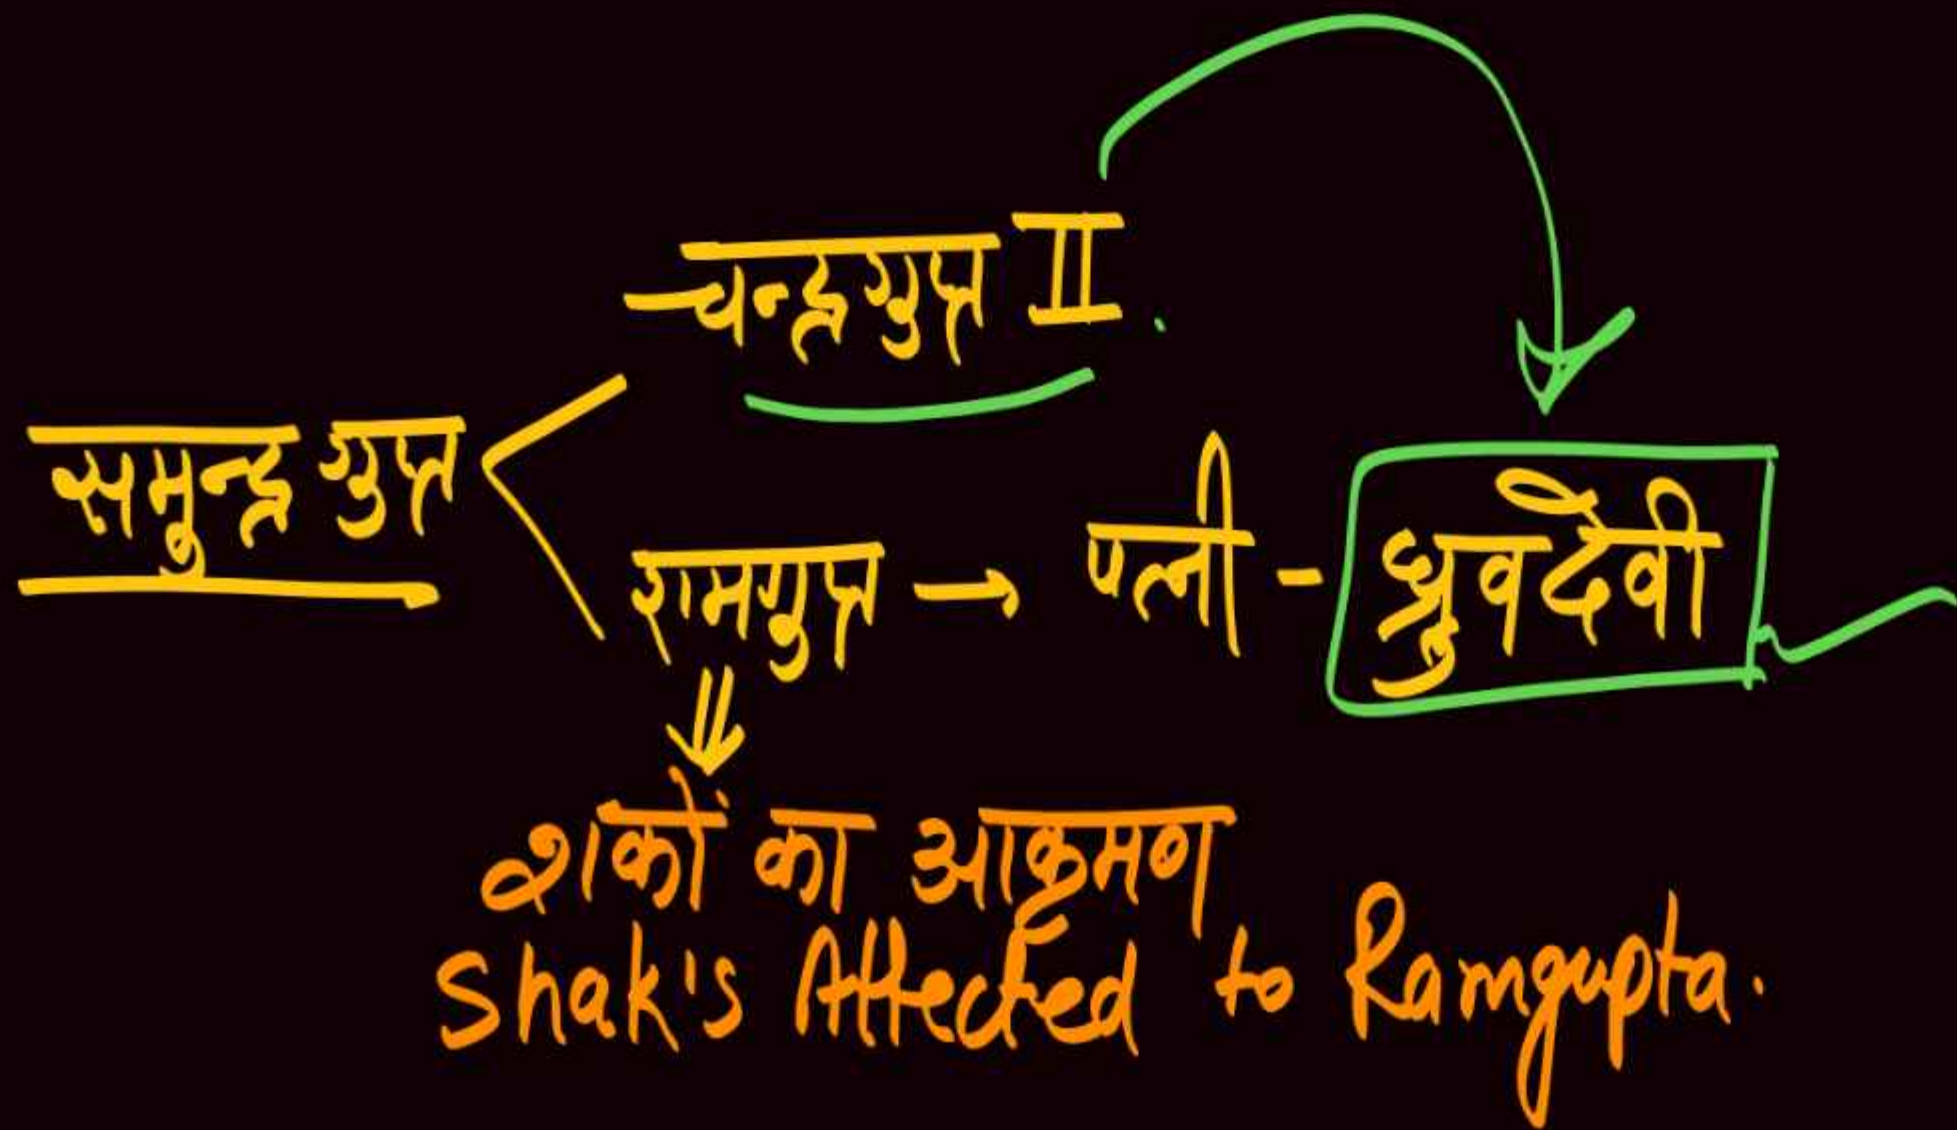 चन्द्रगुप्त II.
समुन्द्र गुप्त
रामगुप्त → पत्नी - ध्रुवदेवी
शकों का आक्रमण
Shak's Attecked to Ramgupta.